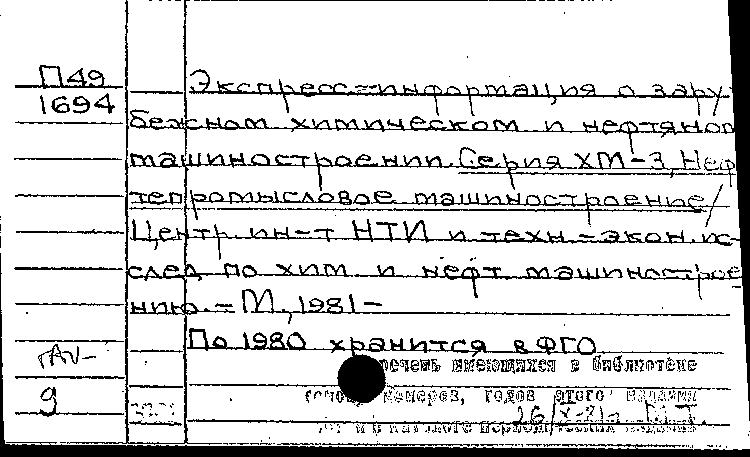 П49
1694
Экспресс-информация о зару-
бежном химическом и нефтяном
машиностроении. Серия ХМ-3, Неф
тепромысловое машиностроение/
Центр. ин-т НТИ и техн.-экон. ис-
след по хим и нефт. машинострое
нию. - М., 1981-
По 1980 хранится в ФГО
речень имеющихся в библиотеке
номеров, годов этого издания
9
26/X-81г.